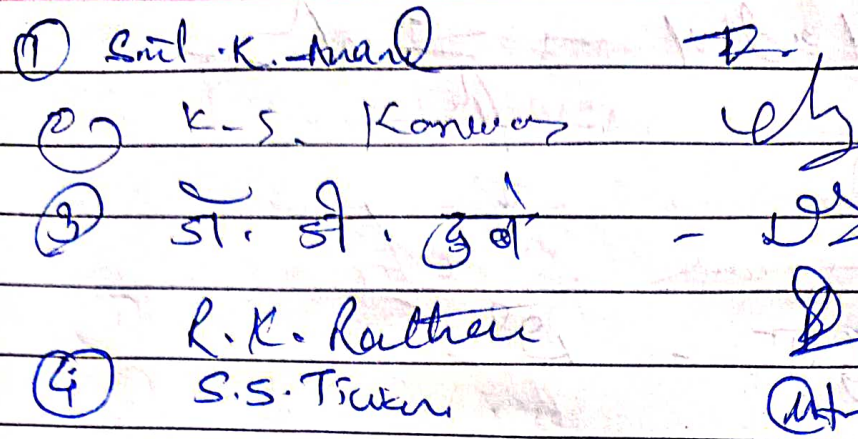 ① Smt. K. Anand
② K-S. Kanwar
③ डॉ. डी. दुबे -
R. K. Rathore
④ S.S. Tiwari